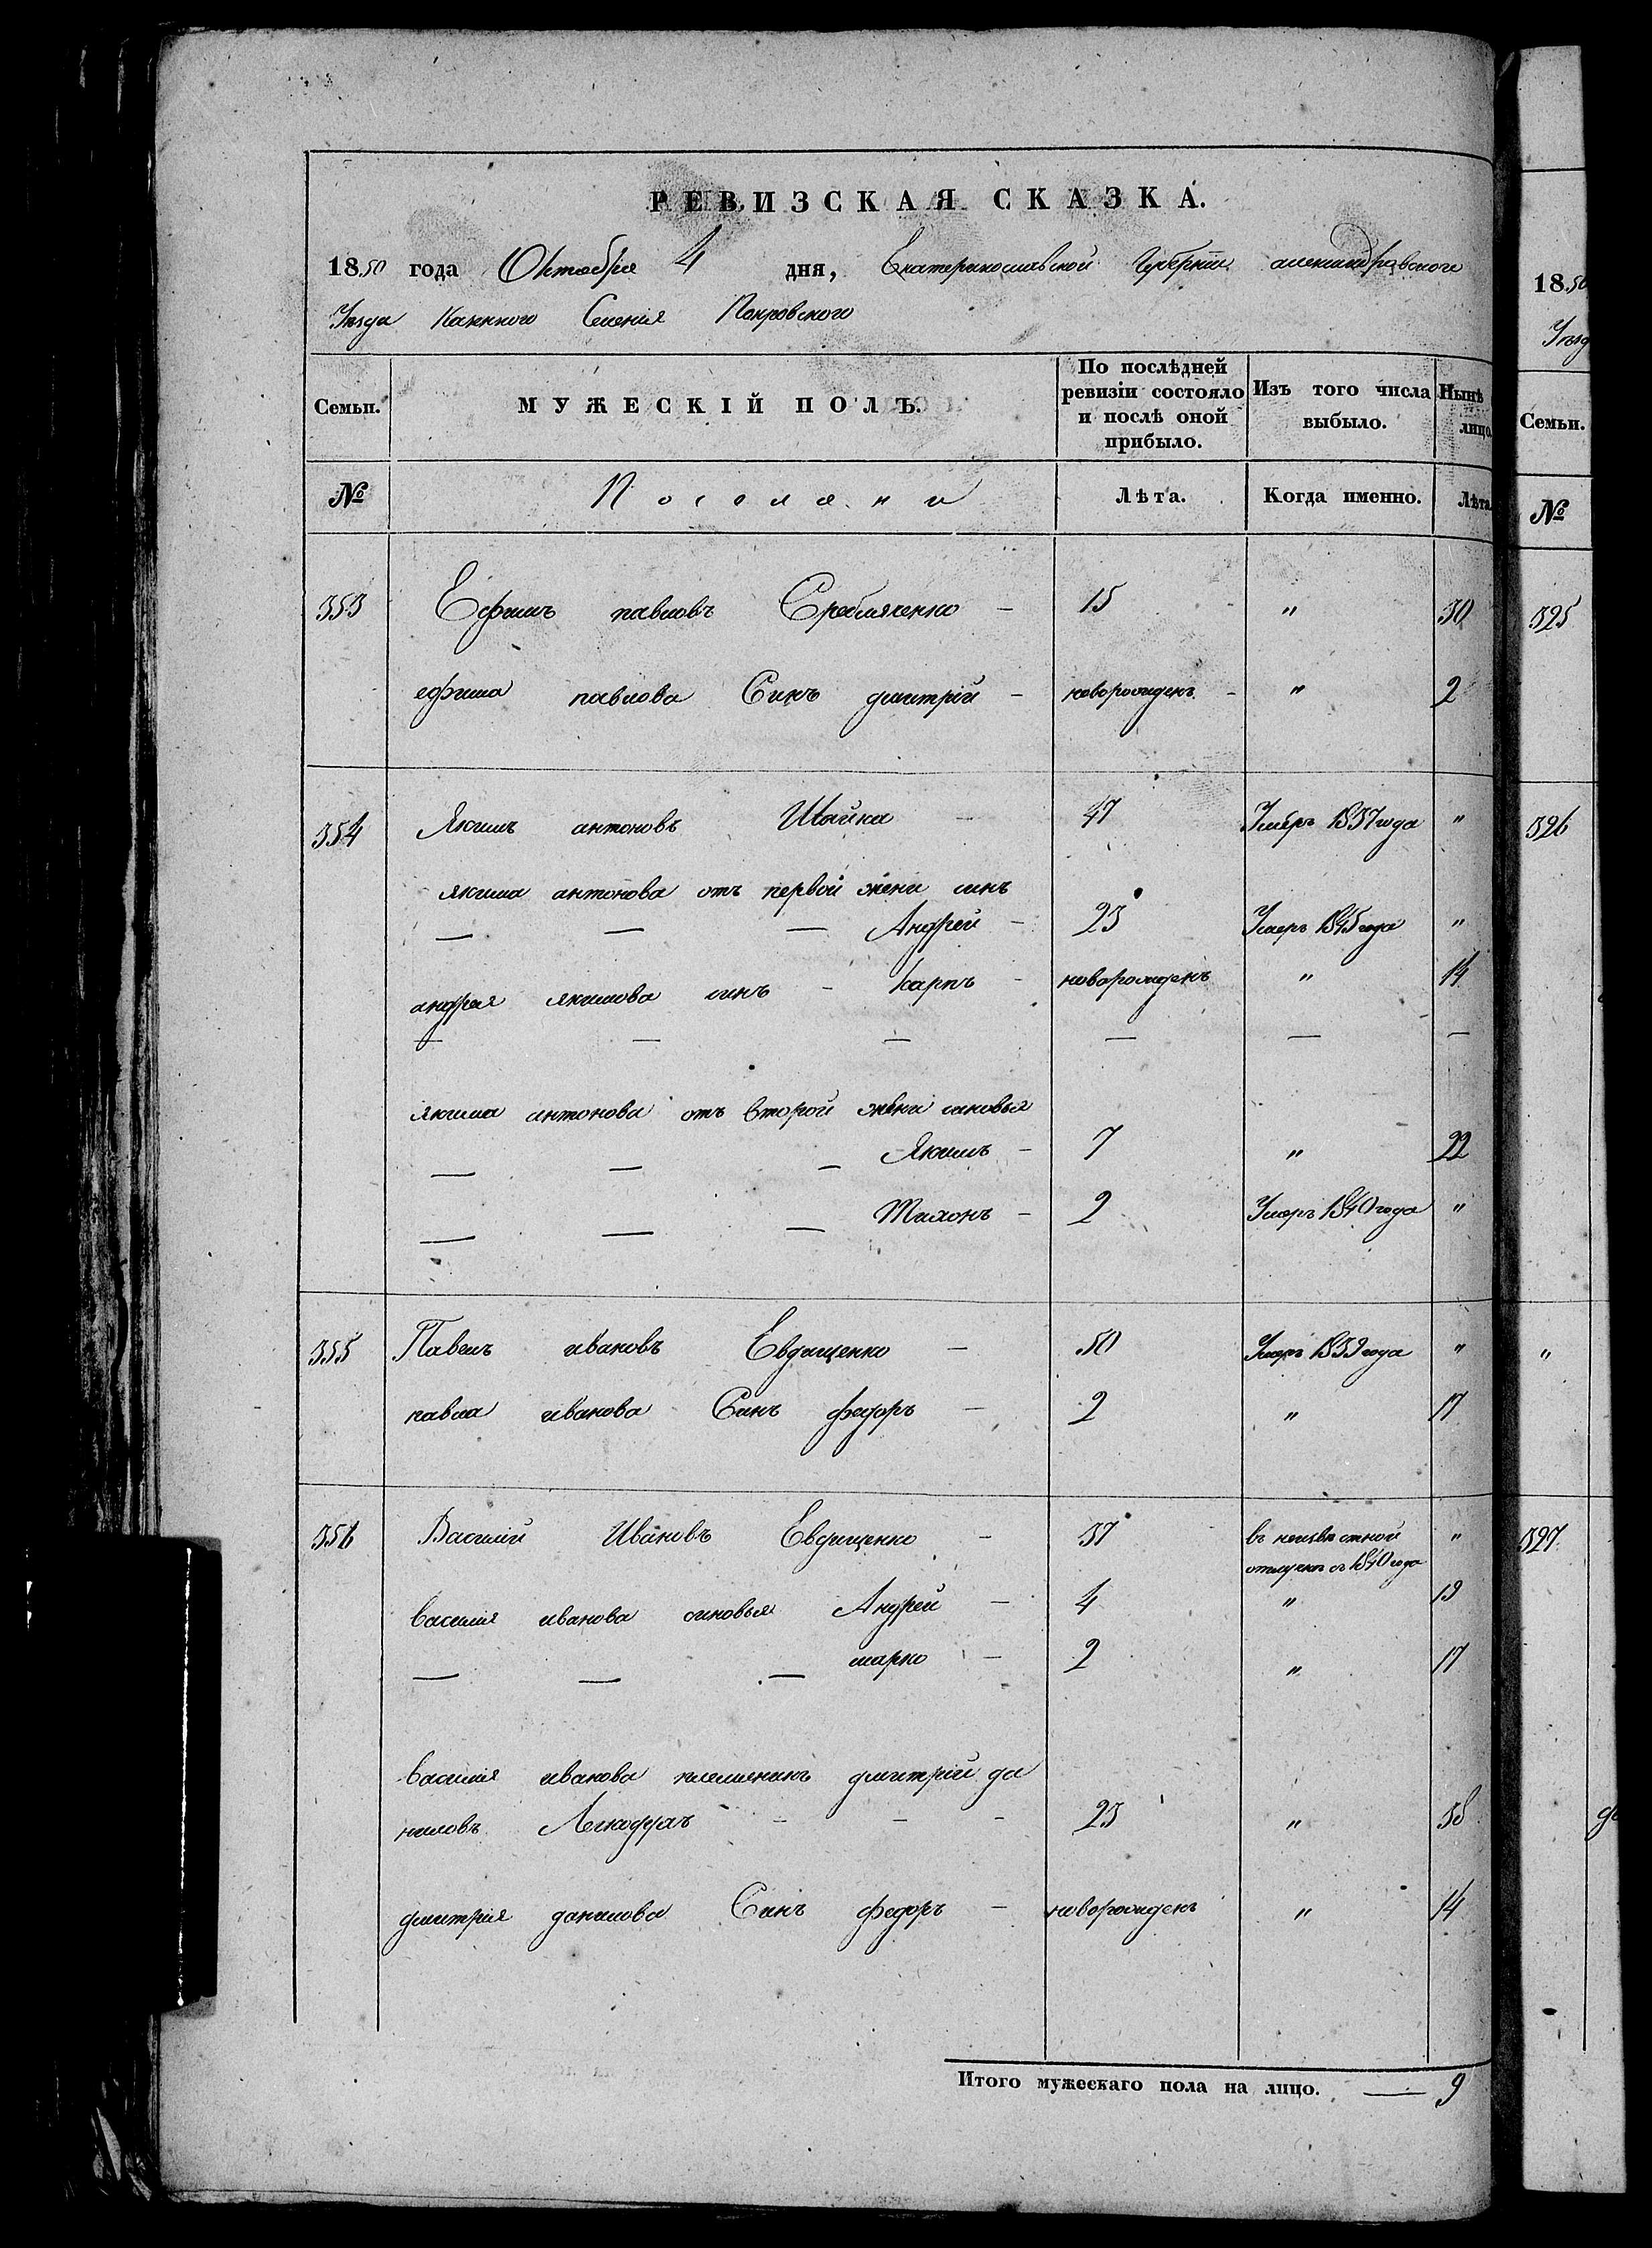 РЕВИЗСКАЯ СКАЗКА.
1850 года Октября 4 дня, Екатеринославской Губернии александровского
Уезда Казенного Селения Покровского
Семьи. МУЖЕСКІЙ ПОЛЪ. По послѣдней ревизіи состояло и послѣ оной прибыло. Изъ того числа выбыло. Нынѣ лицо
№ Поселяни Лѣта. Когда именно. Лѣта
353 Ефимъ павловъ Сребляченко — 15 " 30
ефима павлова Синъ дмитрій — новорожденъ — " 2
354 Якимъ антоновъ Шайка — 47 Умеръ 1837 года "
якима антонова отъ первой жени синъ
— — — Андрей — 23 Умеръ 1845 года "
андрея якимова синъ — Карпъ — новорожденъ " 14
— — — — — —
якима антонова отъ второй жени синовья
— — — Якимъ — 7 " 22
— — — Тихонъ — 2 Умеръ 1840 года "
355 Павелъ ивановъ Евдищенко — 50 Умеръ 1839 года "
павла иванова Синъ федоръ — 2 " 17
356 Василій Ивановъ Евдищенко — 37 въ неизвестной "
отлучке съ 1840 года
василия иванова синовья Андрей — 4 " 19
— — — марко — 2 " 17
василия иванова племеникъ дмитрій да
ниловъ — — — 23 " 38
дмитрия данилова Синъ федоръ — новорожденъ " 14
Итого мужескаго пола на лицо. — 9
1850
Уезд
Семьи.
№
325
326
"
327